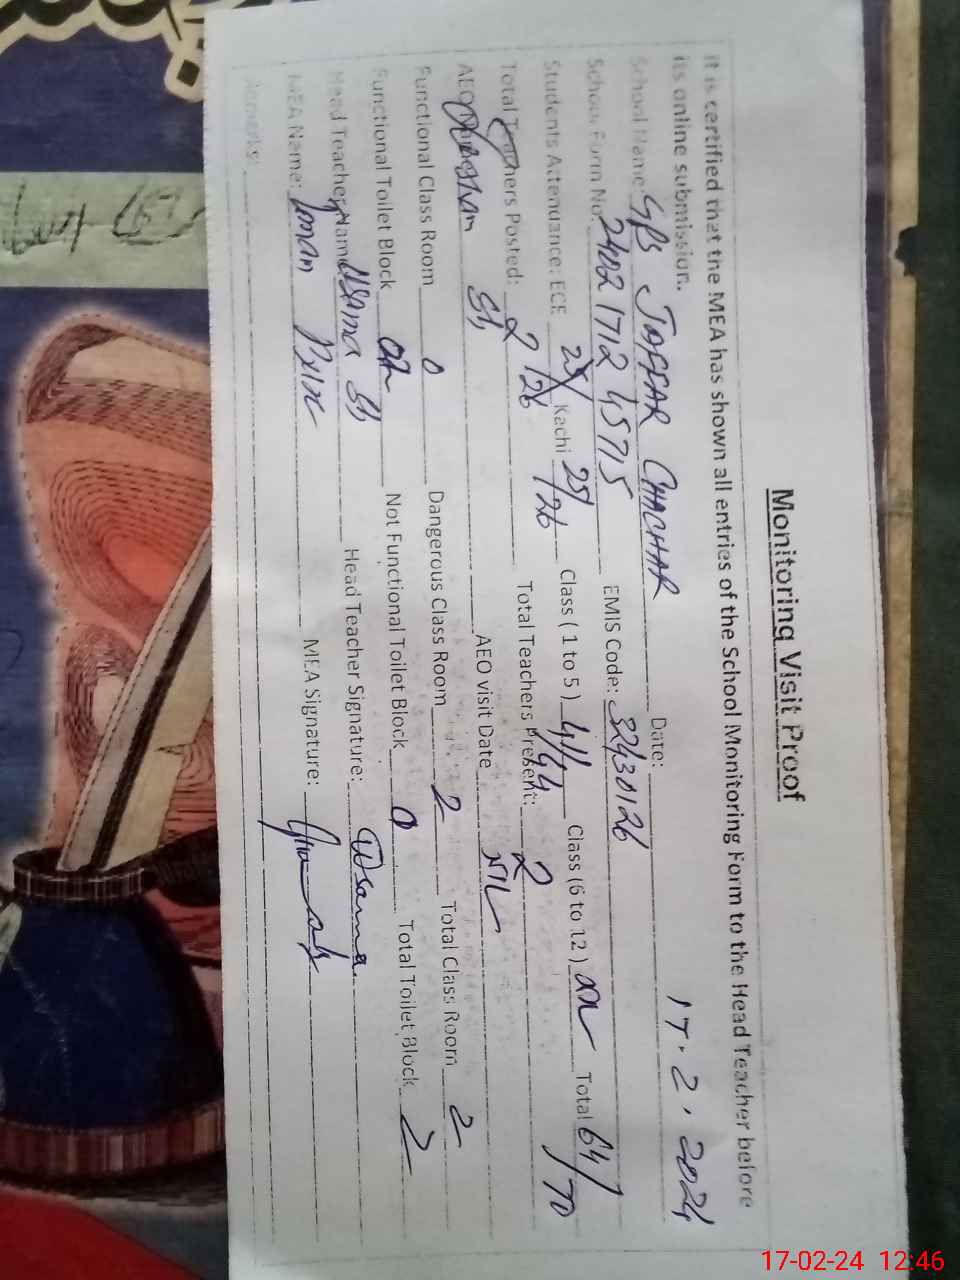 Monitoring Visit Proof
It is certified that the MEA has shown all entries of the School Monitoring Form to the Head Teacher before
its online submission.
School Name: GPS JAFFAR CHACHAR Date: 17.2.2024
School Form No. 2402171245715 EMIS Code: 32430126
Students Attendance: ECE Kachi 25/26 Class ( 1 to 5 ) 41/44 Class (6 to 12 ) Total 64/70
Total Teachers Posted: 2 Total Teachers Present: 2
AEO Name: Sb AEO visit Date NIL
Functional Class Room 0 Dangerous Class Room 2 Total Class Room 2
Functional Toilet Block Not Functional Toilet Block 0 Total Toilet Block 2
Head Teacher Name Usama Sb Head Teacher Signature: Usama
MEA Name: MEA Signature:
Remarks:
17-02-24 12:46